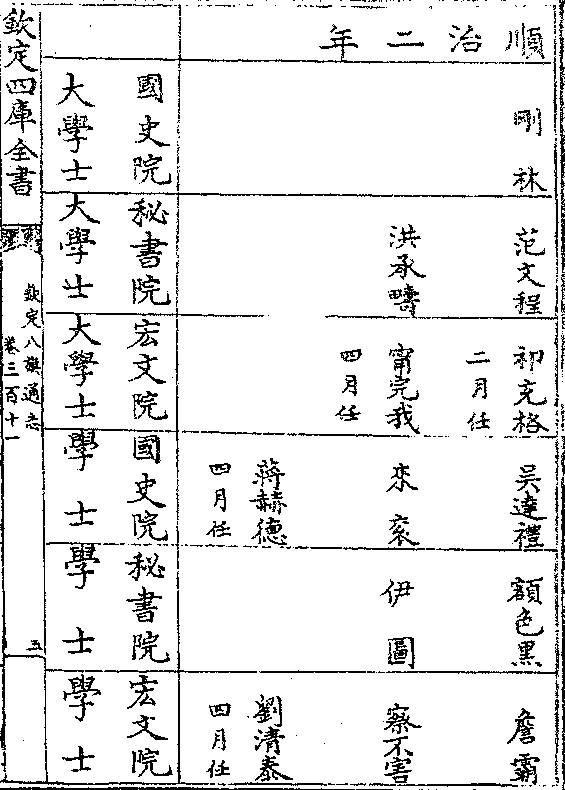 順治二年
剛林
范文程
祁充格
二月任
吳達禮
額色黑
詹霸
洪承疇
甯完我
四月任
來衮
伊圖
察不害
蔣赫德
四月任
劉清泰
四月任
國史院
大學士
秘書院
大學士
宏文院
大學士
國史院
學士
秘書院
學士
宏文院
學士
欽定四庫全書
欽定八旗通志
卷三百十一
五